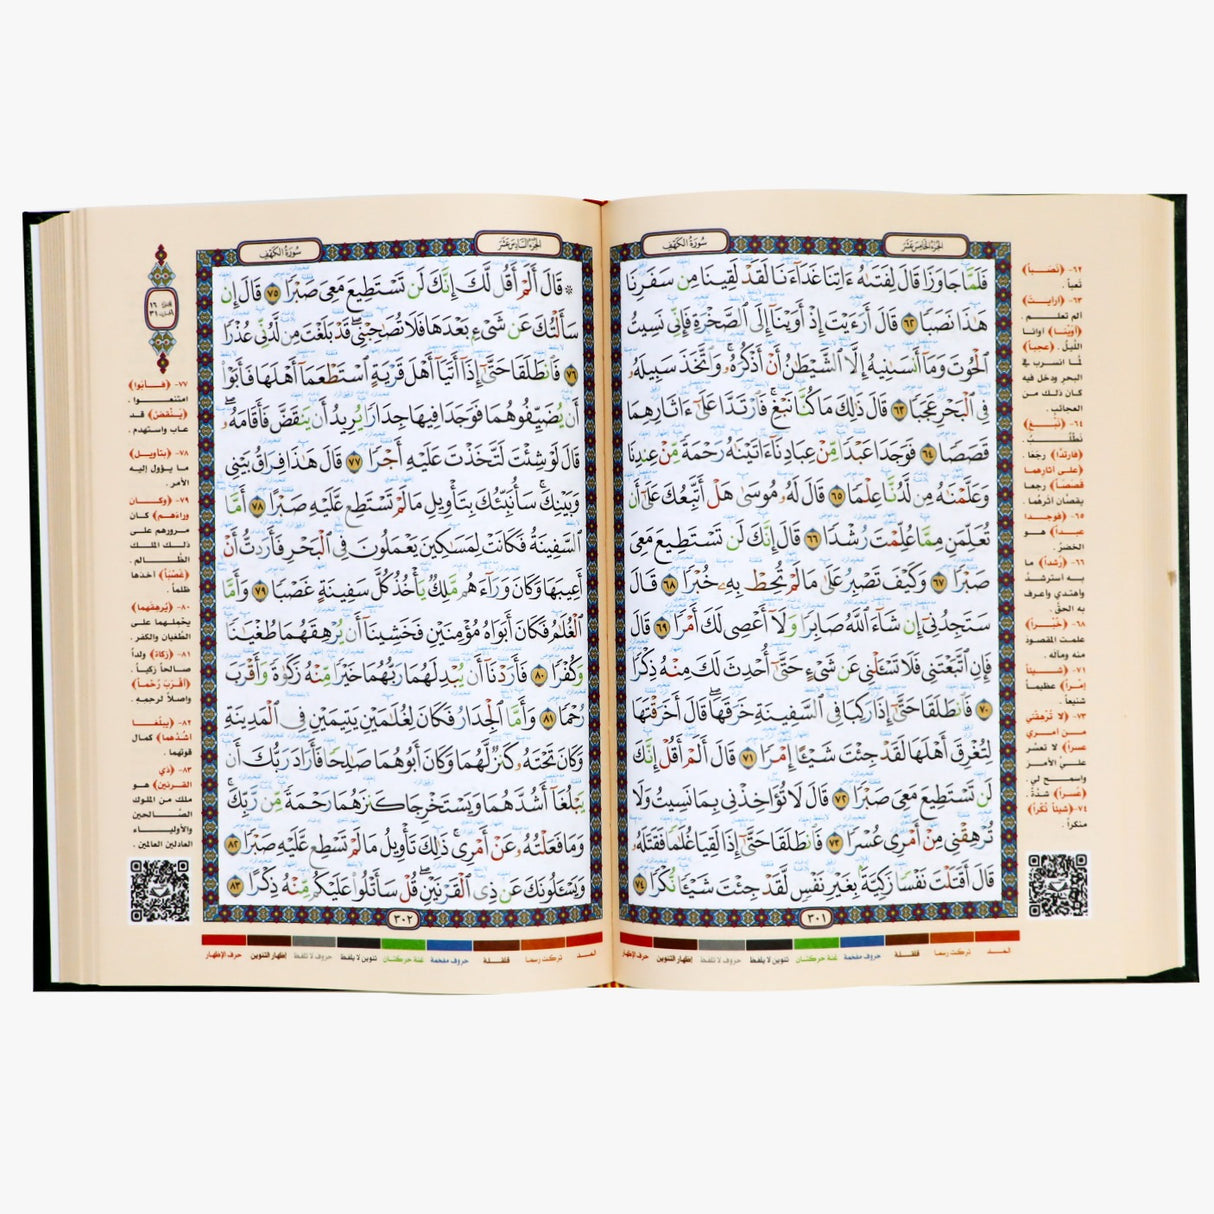 الجزء الخامس عشر
سورة الكهف
فَلَمَّا جَاوَزَا قَالَ لِفَتَىٰهُ ءَاتِنَا غَدَآءَنَا لَقَدْ لَقِينَا مِن سَفَرِنَا
هَٰذَا نَصَبًا ٦٢ قَالَ أَرَءَيْتَ إِذْ أَوَيْنَآ إِلَى ٱلصَّخْرَةِ فَإِنِّى نَسِيتُ
ٱلْحُوتَ وَمَآ أَنسَىٰنِيهُ إِلَّا ٱلشَّيْطَٰنُ أَنْ أَذْكُرَهُۥ ۚ وَٱتَّخَذَ سَبِيلَهُۥ
فِى ٱلْبَحْرِ عَجَبًا ٦٣ قَالَ ذَٰلِكَ مَا كُنَّا نَبْغِ ۚ فَٱرْتَدَّا عَلَىٰٓ ءَاثَارِهِمَا
قَصَصًا ٦٤ فَوَجَدَا عَبْدًا مِّنْ عِبَادِنَآ ءَاتَيْنَٰهُ رَحْمَةً مِّنْ عِندِنَا
وَعَلَّمْنَٰهُ مِن لَّدُنَّا عِلْمًا ٦٥ قَالَ لَهُۥ مُوسَىٰ هَلْ أَتَّبِعُكَ عَلَىٰٓ أَن
تُعَلِّمَنِ مِمَّا عُلِّمْتَ رُشْدًا ٦٦ قَالَ إِنَّكَ لَن تَسْتَطِيعَ مَعِىَ
صَبْرًا ٦٧ وَكَيْفَ تَصْبِرُ عَلَىٰ مَا لَمْ تُحِطْ بِهِۦ خُبْرًا ٦٨ قَالَ
سَتَجِدُنِىٓ إِن شَآءَ ٱللَّهُ صَابِرًا وَلَآ أَعْصِى لَكَ أَمْرًا ٦٩ قَالَ
فَإِنِ ٱتَّبَعْتَنِى فَلَا تَسْـَٔلْنِى عَن شَىْءٍ حَتَّىٰٓ أُحْدِثَ لَكَ مِنْهُ ذِكْرًا
٧٠ فَٱنطَلَقَا حَتَّىٰٓ إِذَا رَكِبَا فِى ٱلسَّفِينَةِ خَرَقَهَا ۖ قَالَ أَخَرَقْتَهَا
لِتُغْرِقَ أَهْلَهَا لَقَدْ جِئْتَ شَيْـًٔا إِمْرًا ٧١ قَالَ أَلَمْ أَقُلْ إِنَّكَ
لَن تَسْتَطِيعَ مَعِىَ صَبْرًا ٧٢ قَالَ لَا تُؤَاخِذْنِى بِمَا نَسِيتُ وَلَا
تُرْهِقْنِى مِنْ أَمْرِى عُسْرًا ٧٣ فَٱنطَلَقَا حَتَّىٰٓ إِذَا لَقِيَا غُلَٰمًا فَقَتَلَهُۥ
قَالَ أَقَتَلْتَ نَفْسًا زَكِيَّةًۢ بِغَيْرِ نَفْسٍ لَّقَدْ جِئْتَ شَيْـًٔا نُّكْرًا ٧٤
٣٠١
٦٢- ﴿نَصَباً﴾
تعباً .
٦٣- ﴿أرأيت﴾
ألم تعلم .
﴿أوَيْنا﴾ أوانا
الليلُ . ﴿عجباً﴾
لما انسرب في
البحر ودخل فيه
كأن ذلك من
العجائب .
٦٤- ﴿نَبْغِ﴾
نَطْلُبُ .
﴿فارتدَّا﴾ رجعَا .
﴿على آثارهما
قصصاً﴾ رجعا
يقصان أثرهما .
٦٥- ﴿فوجدا
عبداً﴾ هو
الخضرُ .
٦٦- ﴿رشداً﴾ ما
به استرشد
واهتدي وأعرف
به الحقَّ .
٦٨- ﴿خُبْراً﴾
علمت المقصود
منه ومآله .
٧١- ﴿شيئاً
إمْراً﴾ عظيماً
شنيعاً .
٧٣- ﴿لا تُرهقني
من أمري
عسراً﴾ لا تعسِّر
عليَّ الأمر
واسمح لي .
﴿عُسراً﴾ شدَّةً .
٧٤- ﴿شيئاً نُكراً﴾
منكراً .
المد
تركت رسما
قلقلة
حروف مفخمة
غنة حركتان
تنوين لا يلفظ
حروف لا تلفظ
إظهار التنوين
حرف الإظهار
الجزء السادس عشر
سورة الكهف
۞ قَالَ أَلَمْ أَقُل لَّكَ إِنَّكَ لَن تَسْتَطِيعَ مَعِىَ صَبْرًا ٧٥ قَالَ إِن
سَأَلْتُكَ عَن شَىْءٍۭ بَعْدَهَا فَلَا تُصَٰحِبْنِى ۖ قَدْ بَلَغْتَ مِن لَّدُنِّى عُذْرًا
٧٦ فَٱنطَلَقَا حَتَّىٰٓ إِذَآ أَتَيَآ أَهْلَ قَرْيَةٍ ٱسْتَطْعَمَآ أَهْلَهَا فَأَبَوْا۟
أَن يُضَيِّفُوهُمَا فَوَجَدَا فِيهَا جِدَارًا يُرِيدُ أَن يَنقَضَّ فَأَقَامَهُۥ ۖ
قَالَ لَوْ شِئْتَ لَتَّخَذْتَ عَلَيْهِ أَجْرًا ٧٧ قَالَ هَٰذَا فِرَاقُ بَيْنِى
وَبَيْنِكَ ۚ سَأُنَبِّئُكَ بِتَأْوِيلِ مَا لَمْ تَسْتَطِع عَّلَيْهِ صَبْرًا ٧٨ أَمَّا
ٱلسَّفِينَةُ فَكَانَتْ لِمَسَٰكِينَ يَعْمَلُونَ فِى ٱلْبَحْرِ فَأَرَدتُّ أَنْ
أَعِيبَهَا وَكَانَ وَرَآءَهُم مَّلِكٌ يَأْخُذُ كُلَّ سَفِينَةٍ غَصْبًا ٧٩ وَأَمَّا
ٱلْغُلَٰمُ فَكَانَ أَبَوَاهُ مُؤْمِنَيْنِ فَخَشِينَآ أَن يُرْهِقَهُمَا طُغْيَٰنًا
وَكُفْرًا ٨٠ فَأَرَدْنَآ أَن يُبْدِلَهُمَا رَبُّهُمَا خَيْرًا مِّنْهُ زَكَوٰةً وَأَقْرَبَ
رُحْمًا ٨١ وَأَمَّا ٱلْجِدَارُ فَكَانَ لِغُلَٰمَيْنِ يَتِيمَيْنِ فِى ٱلْمَدِينَةِ
وَكَانَ تَحْتَهُۥ كَنزٌ لَّهُمَا وَكَانَ أَبُوهُمَا صَٰلِحًا فَأَرَادَ رَبُّكَ أَن
يَبْلُغَآ أَشُدَّهُمَا وَيَسْتَخْرِجَا كَنزَهُمَا رَحْمَةً مِّن رَّبِّكَ ۚ
وَمَا فَعَلْتُهُۥ عَنْ أَمْرِى ۚ ذَٰلِكَ تَأْوِيلُ مَا لَمْ تَسْطِع عَّلَيْهِ صَبْرًا ٨٢
وَيَسْـَٔلُونَكَ عَن ذِى ٱلْقَرْنَيْنِ ۖ قُلْ سَأَتْلُوا۟ عَلَيْكُم مِّنْهُ ذِكْرًا ٨٣
٣٠٢
الجزء ١٦
الحزب ٣١
٧٧- ﴿فأبَوا﴾
امتنعوا .
﴿يَنْقضَّ﴾ قد
عاب واستهدم .
٧٨- ﴿بتأويل﴾
ما يؤول إليه
الأمر .
٧٩- ﴿وكان
وراءهم﴾ كان
مرورهم على
ذلك الملك
الظالم .
﴿غَصْباً﴾ أخذها
ظلماً .
٨٠- ﴿يُرهقهما﴾
يحملهما على
الطغيان والكفر .
٨١- ﴿زكاة﴾ ولداً
صالحاً زكياً .
﴿أقْرَبَ رُحْماً﴾
وأصلاً لرحمه .
٨٢- ﴿يبلُغا
أشُدهما﴾ كمال
قوتهما .
٨٣- ﴿ذي
القرنين﴾ هو
ملك من الملوك
الصالحين
والأولياء
العادلين العالمين .
المد
تركت رسما
قلقلة
حروف مفخمة
غنة حركتان
تنوين لا يلفظ
حروف لا تلفظ
إظهار التنوين
حرف الإظهار